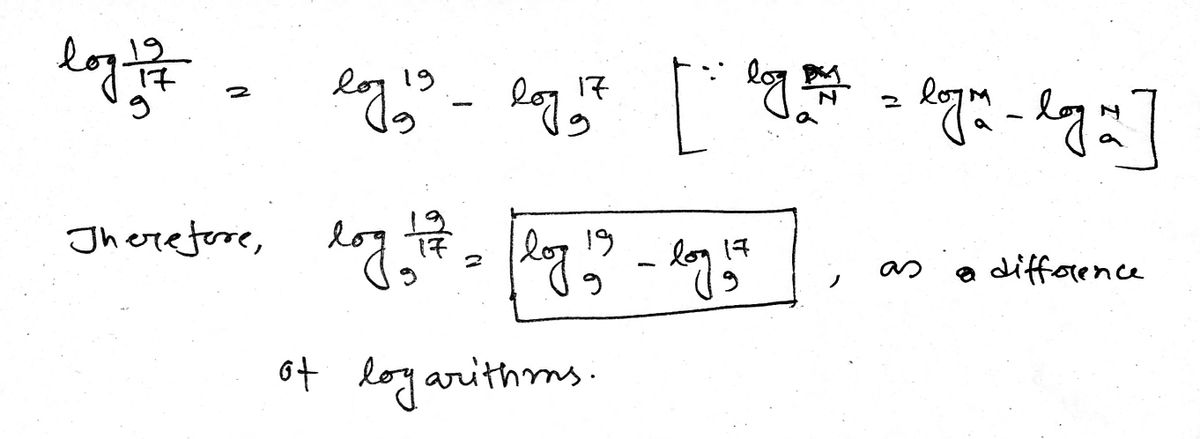 log₉ 19/17 = log₉ 19 - log₉ 17 [∵ logₐ M/N = logₐ M - logₐ N]
Therefore, log₉ 19/17 = log₉ 19 - log₉ 17, as a difference
of logarithms.